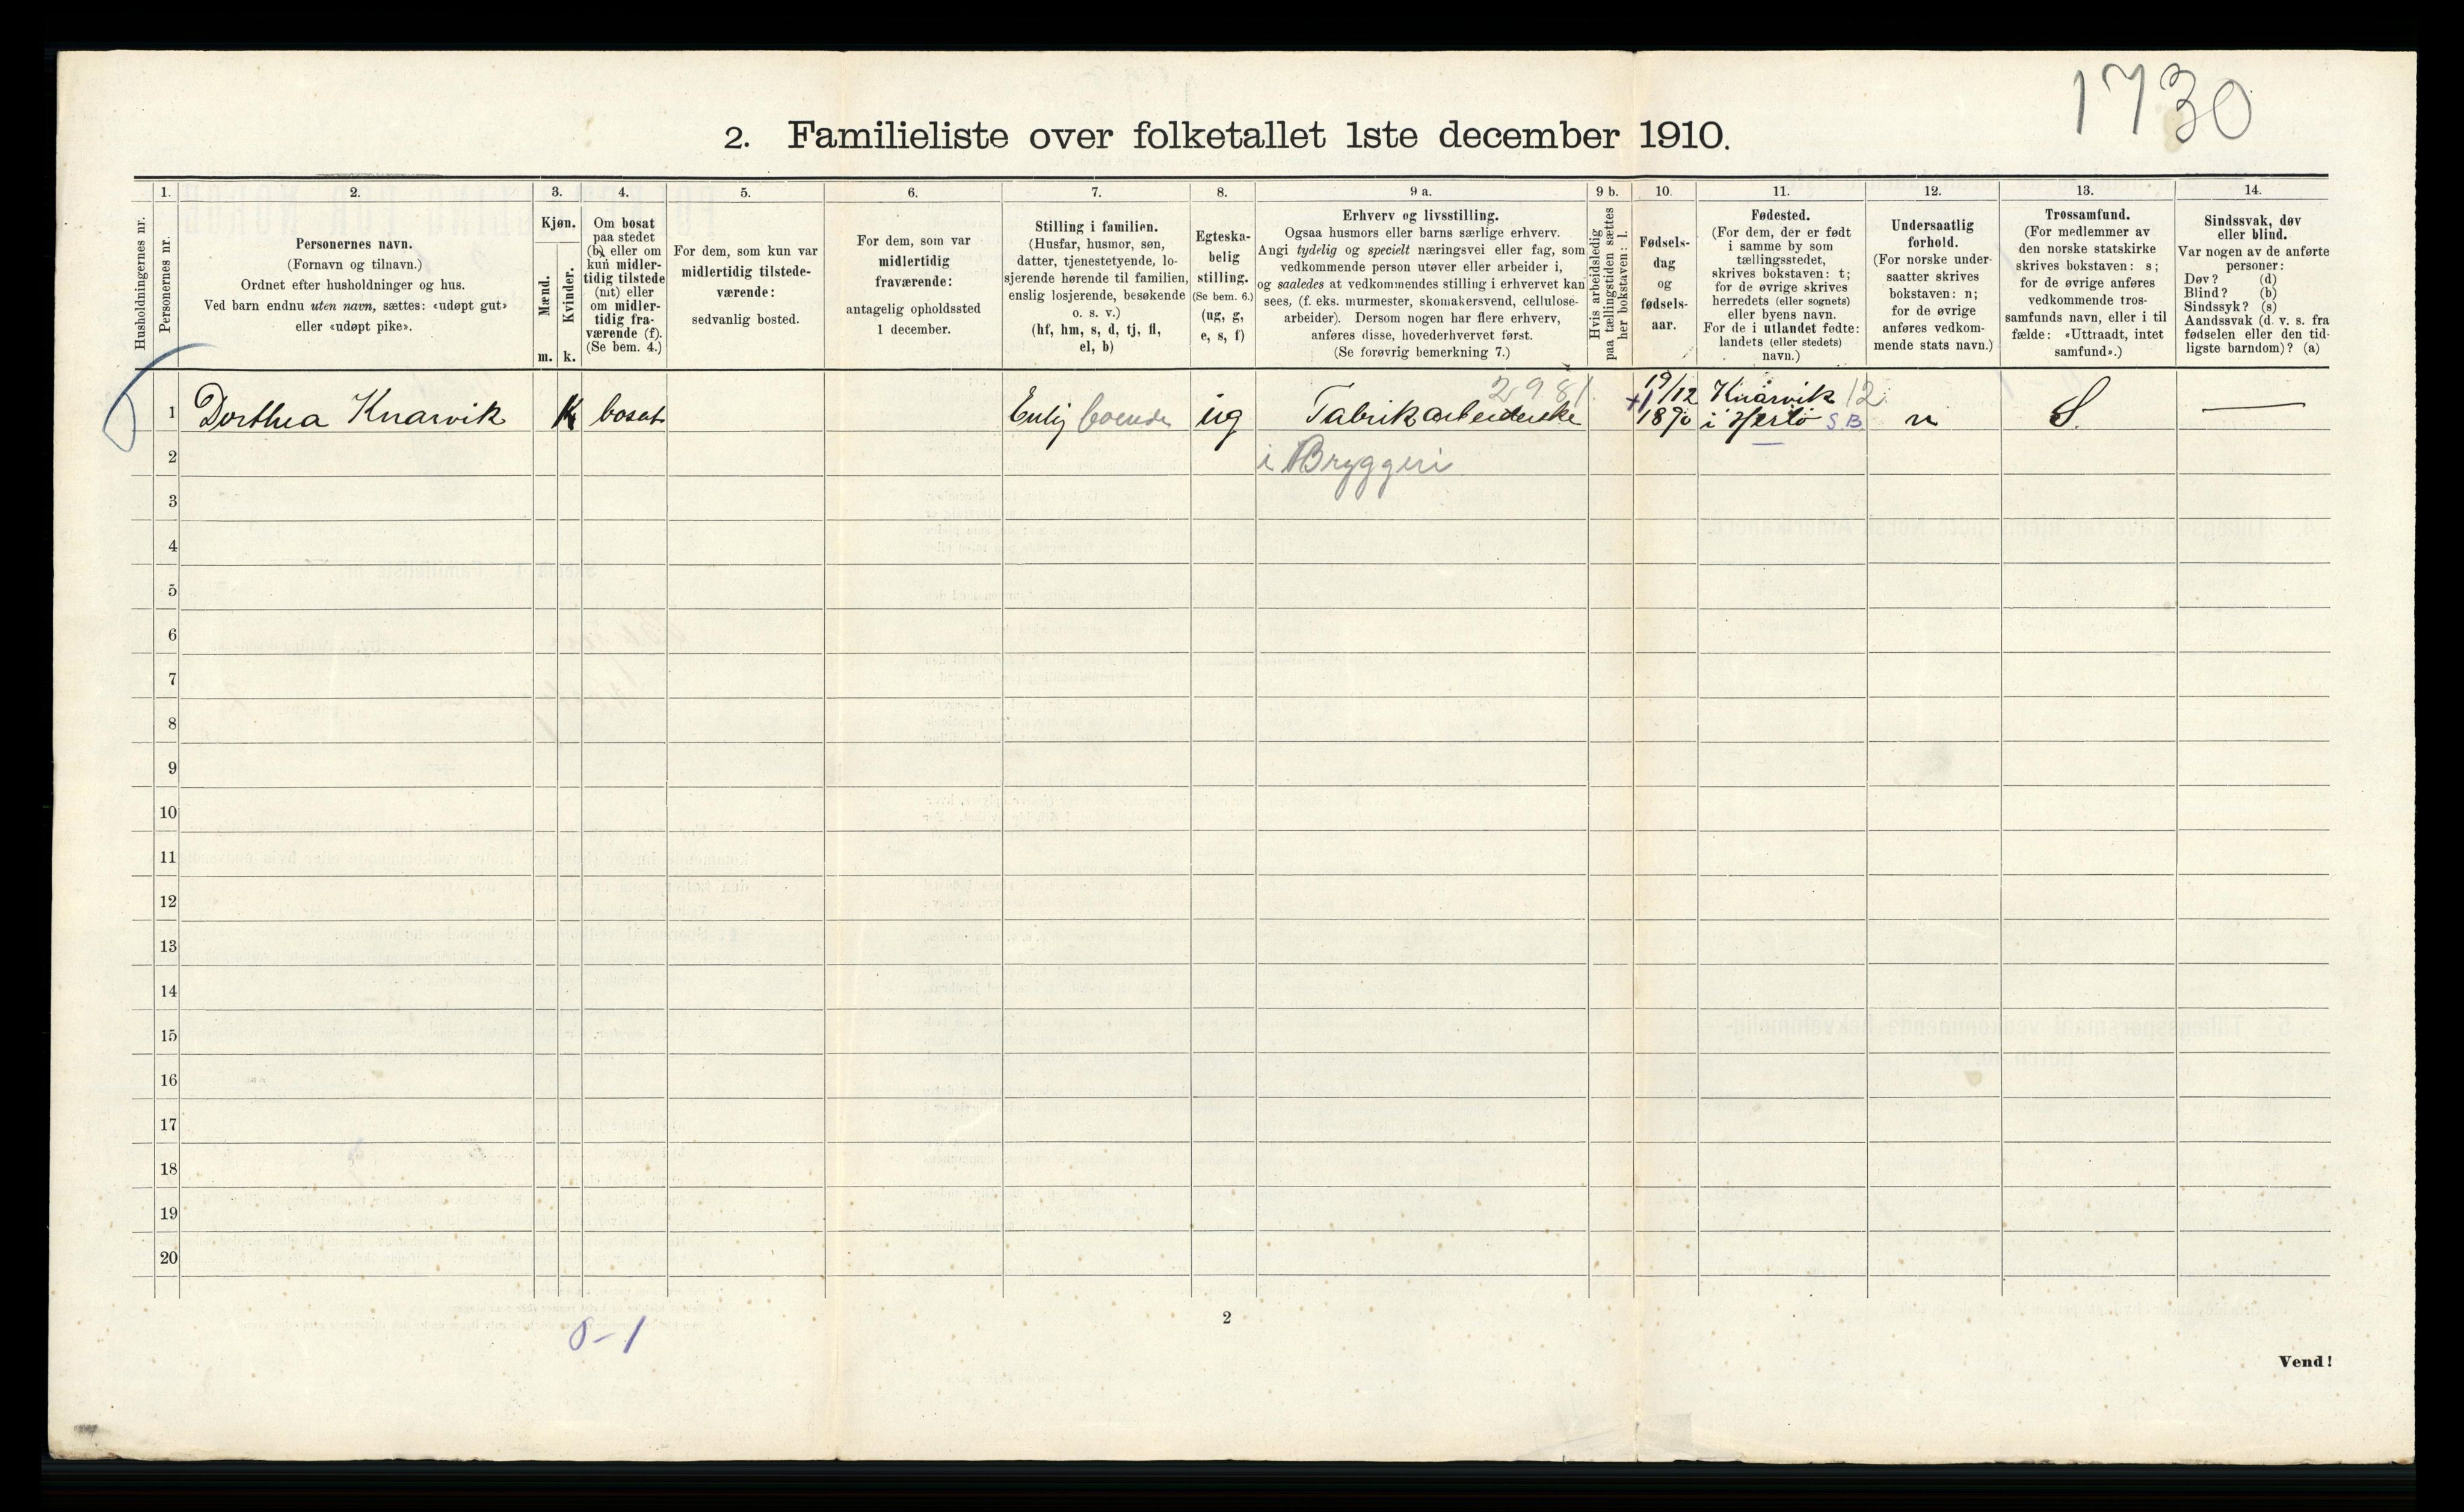 1730
2. Familieliste over folketallet 1ste december 1910.
1. 2. 3. 4. 5. 6. 7. 8. 9 a. 9 b. 10. 11. 12. 13. 14.
Husholdningernes nr.
Personernes nr.
Personernes navn.
(Fornavn og tilnavn.)
Ordnet efter husholdninger og hus.
Ved barn endnu uten navn, sættes: «udøpt gut»
eller «udøpt pike».
Kjøn.
Mænd.
Kvinder.
m. k.
Om bosat
paa stedet
(b) eller om
kun midler-
tidig tilstede
(mt) eller
om midler-
tidig fra-
værende (f).
(Se bem. 4.)
For dem, som kun var
midlertidig tilstede-
værende:
sedvanlig bosted.
For dem, som var
midlertidig
fraværende:
antagelig opholdssted
1 december.
Stilling i familien.
(Husfar, husmor, søn,
datter, tjenestetyende, lo-
sjerende hørende til familien,
enslig losjerende, besøkende
o. s. v.)
(hf, hm, s, d, tj, fl,
el, b)
Egteska-
belig
stilling.
(Se bem. 6.)
(ug, g,
e, s, f)
Erhverv og livsstilling.
Ogsaa husmors eller barns særlige erhverv.
Angi tydelig og specielt næringsvei eller fag, som
vedkommende person utøver eller arbeider i,
og saaledes at vedkommendes stilling i erhvervet kan
sees, (f. eks. murmester, skomakersvend, cellulose-
arbeider). Dersom nogen har flere erhverv,
anføres disse, hovederhvervet først.
(Se forøvrig bemerkning 7.)
Hvis arbeidsledig
paa tællingstiden sættes
her bokstaven: l.
Fødsels-
dag
og
fødsels-
aar.
Fødested.
(For dem, der er født
i samme by som
tællingsstedet,
skrives bokstaven: t;
for de øvrige skrives
herredets (eller sognets)
eller byens navn.
For de i utlandet fødte:
landets (eller stedets)
navn.)
Undersaatlig
forhold.
(For norske under-
saatter skrives
bokstaven: n;
for de øvrige
anføres vedkom-
mende stats navn.)
Trossamfund.
(For medlemmer av
den norske statskirke
skrives bokstaven: s;
for de øvrige anføres
vedkommende tros-
samfunds navn, eller i til
fælde: «Uttraadt, intet
samfund».)
Sindssvak, døv
eller blind.
Var nogen av de anførte
personer:
Døv? (d)
Blind? (b)
Sindssyk? (s)
Aandssvak (d. v. s. fra
fødselen eller den tid-
ligste barndom)? (a)
2981. 19/12 Knarvik 12.
1 Dorthea Knarvik K bosat Enlig boende ug Fabrikarbeiderske 1890 i Herlø S.B. n S. —
2 i Bryggeri
3
4
5
6
7
8
9
10
11
12
13
14
15
16
17
18
19
20
2
0-1
Vend!